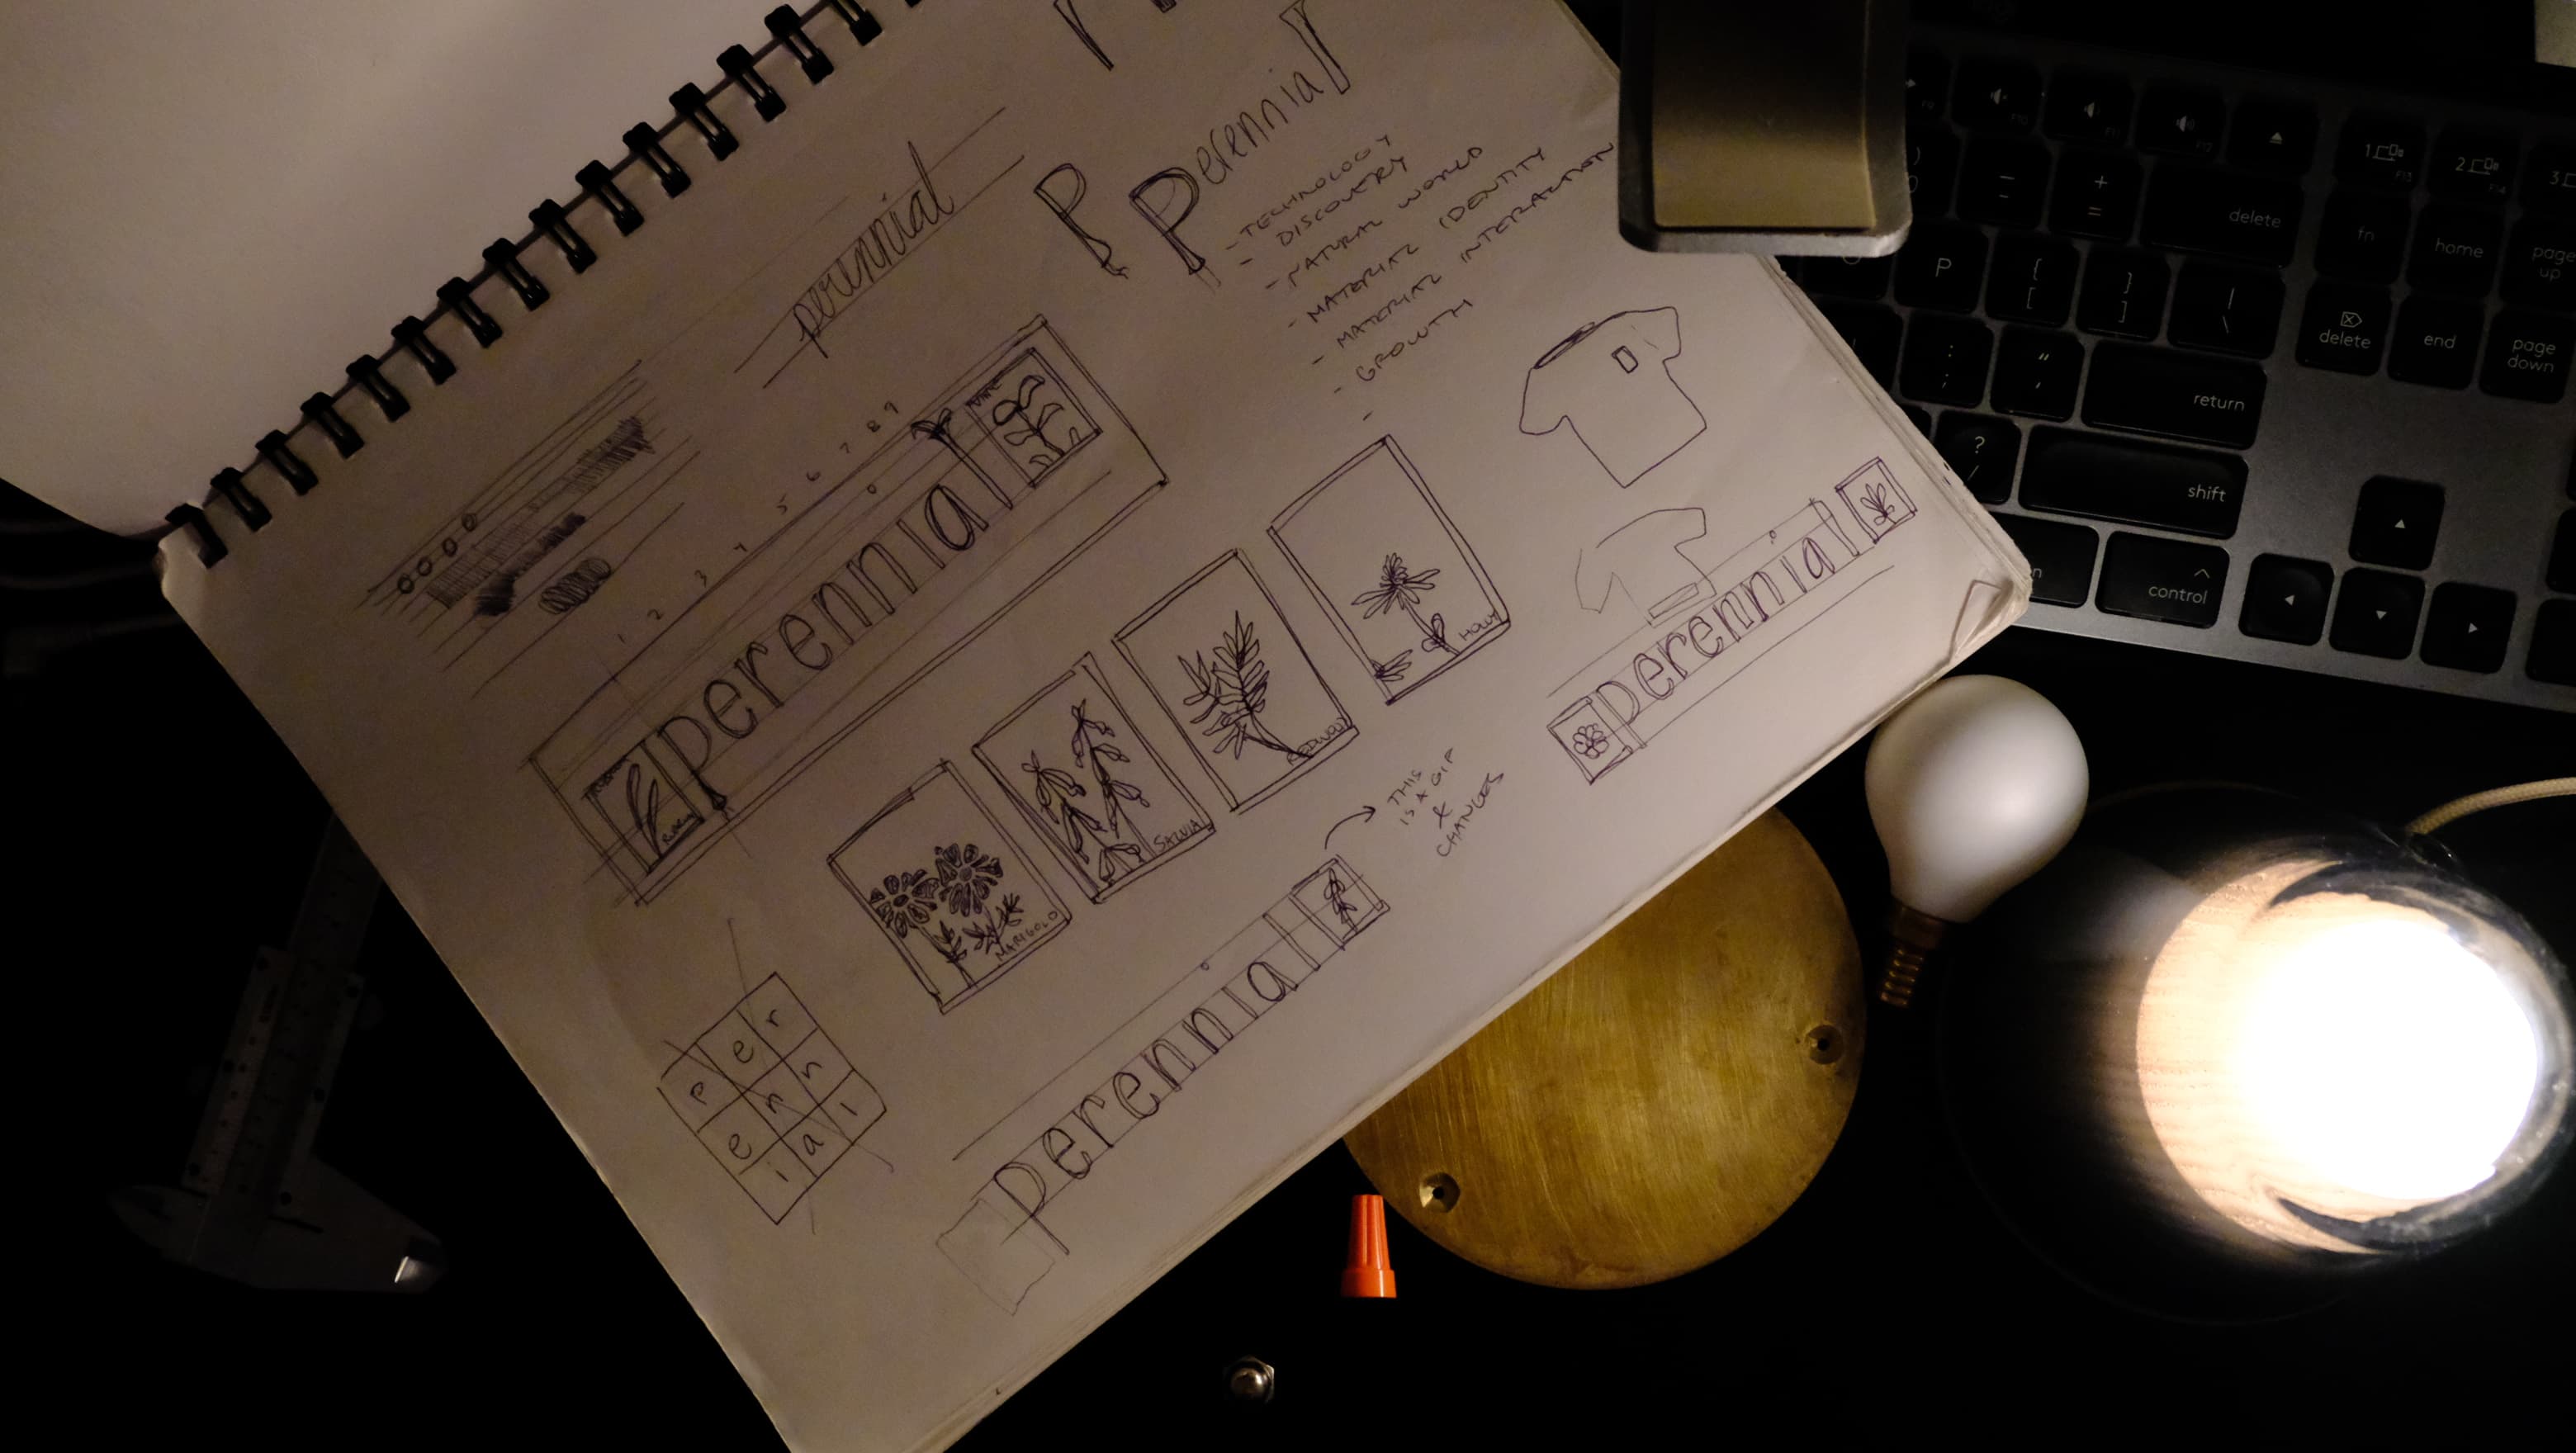 perennial
P
Perennial
- TECHNOLOGY
- DISCOVERY
- NATURAL WORLD
- MATERIAL IDENTITY
- MATERIAL INTERACTION
- GROWTH
-
1 2 3 4 5 6 7 8 9
perennial
MARIGOLD
SALVIA
REDWOOD
HOLLY
perennial
THIS
IS A GIF
&
CHANGES
perennial
p e r
e n n
i a l
delete
fn
home
page
up
P
{
[
}
]
|
\
+
=
delete
end
page
down
:
;
"
'
return
?
/
shift
control
F10
F11
F12
F13
F14
1
2
3